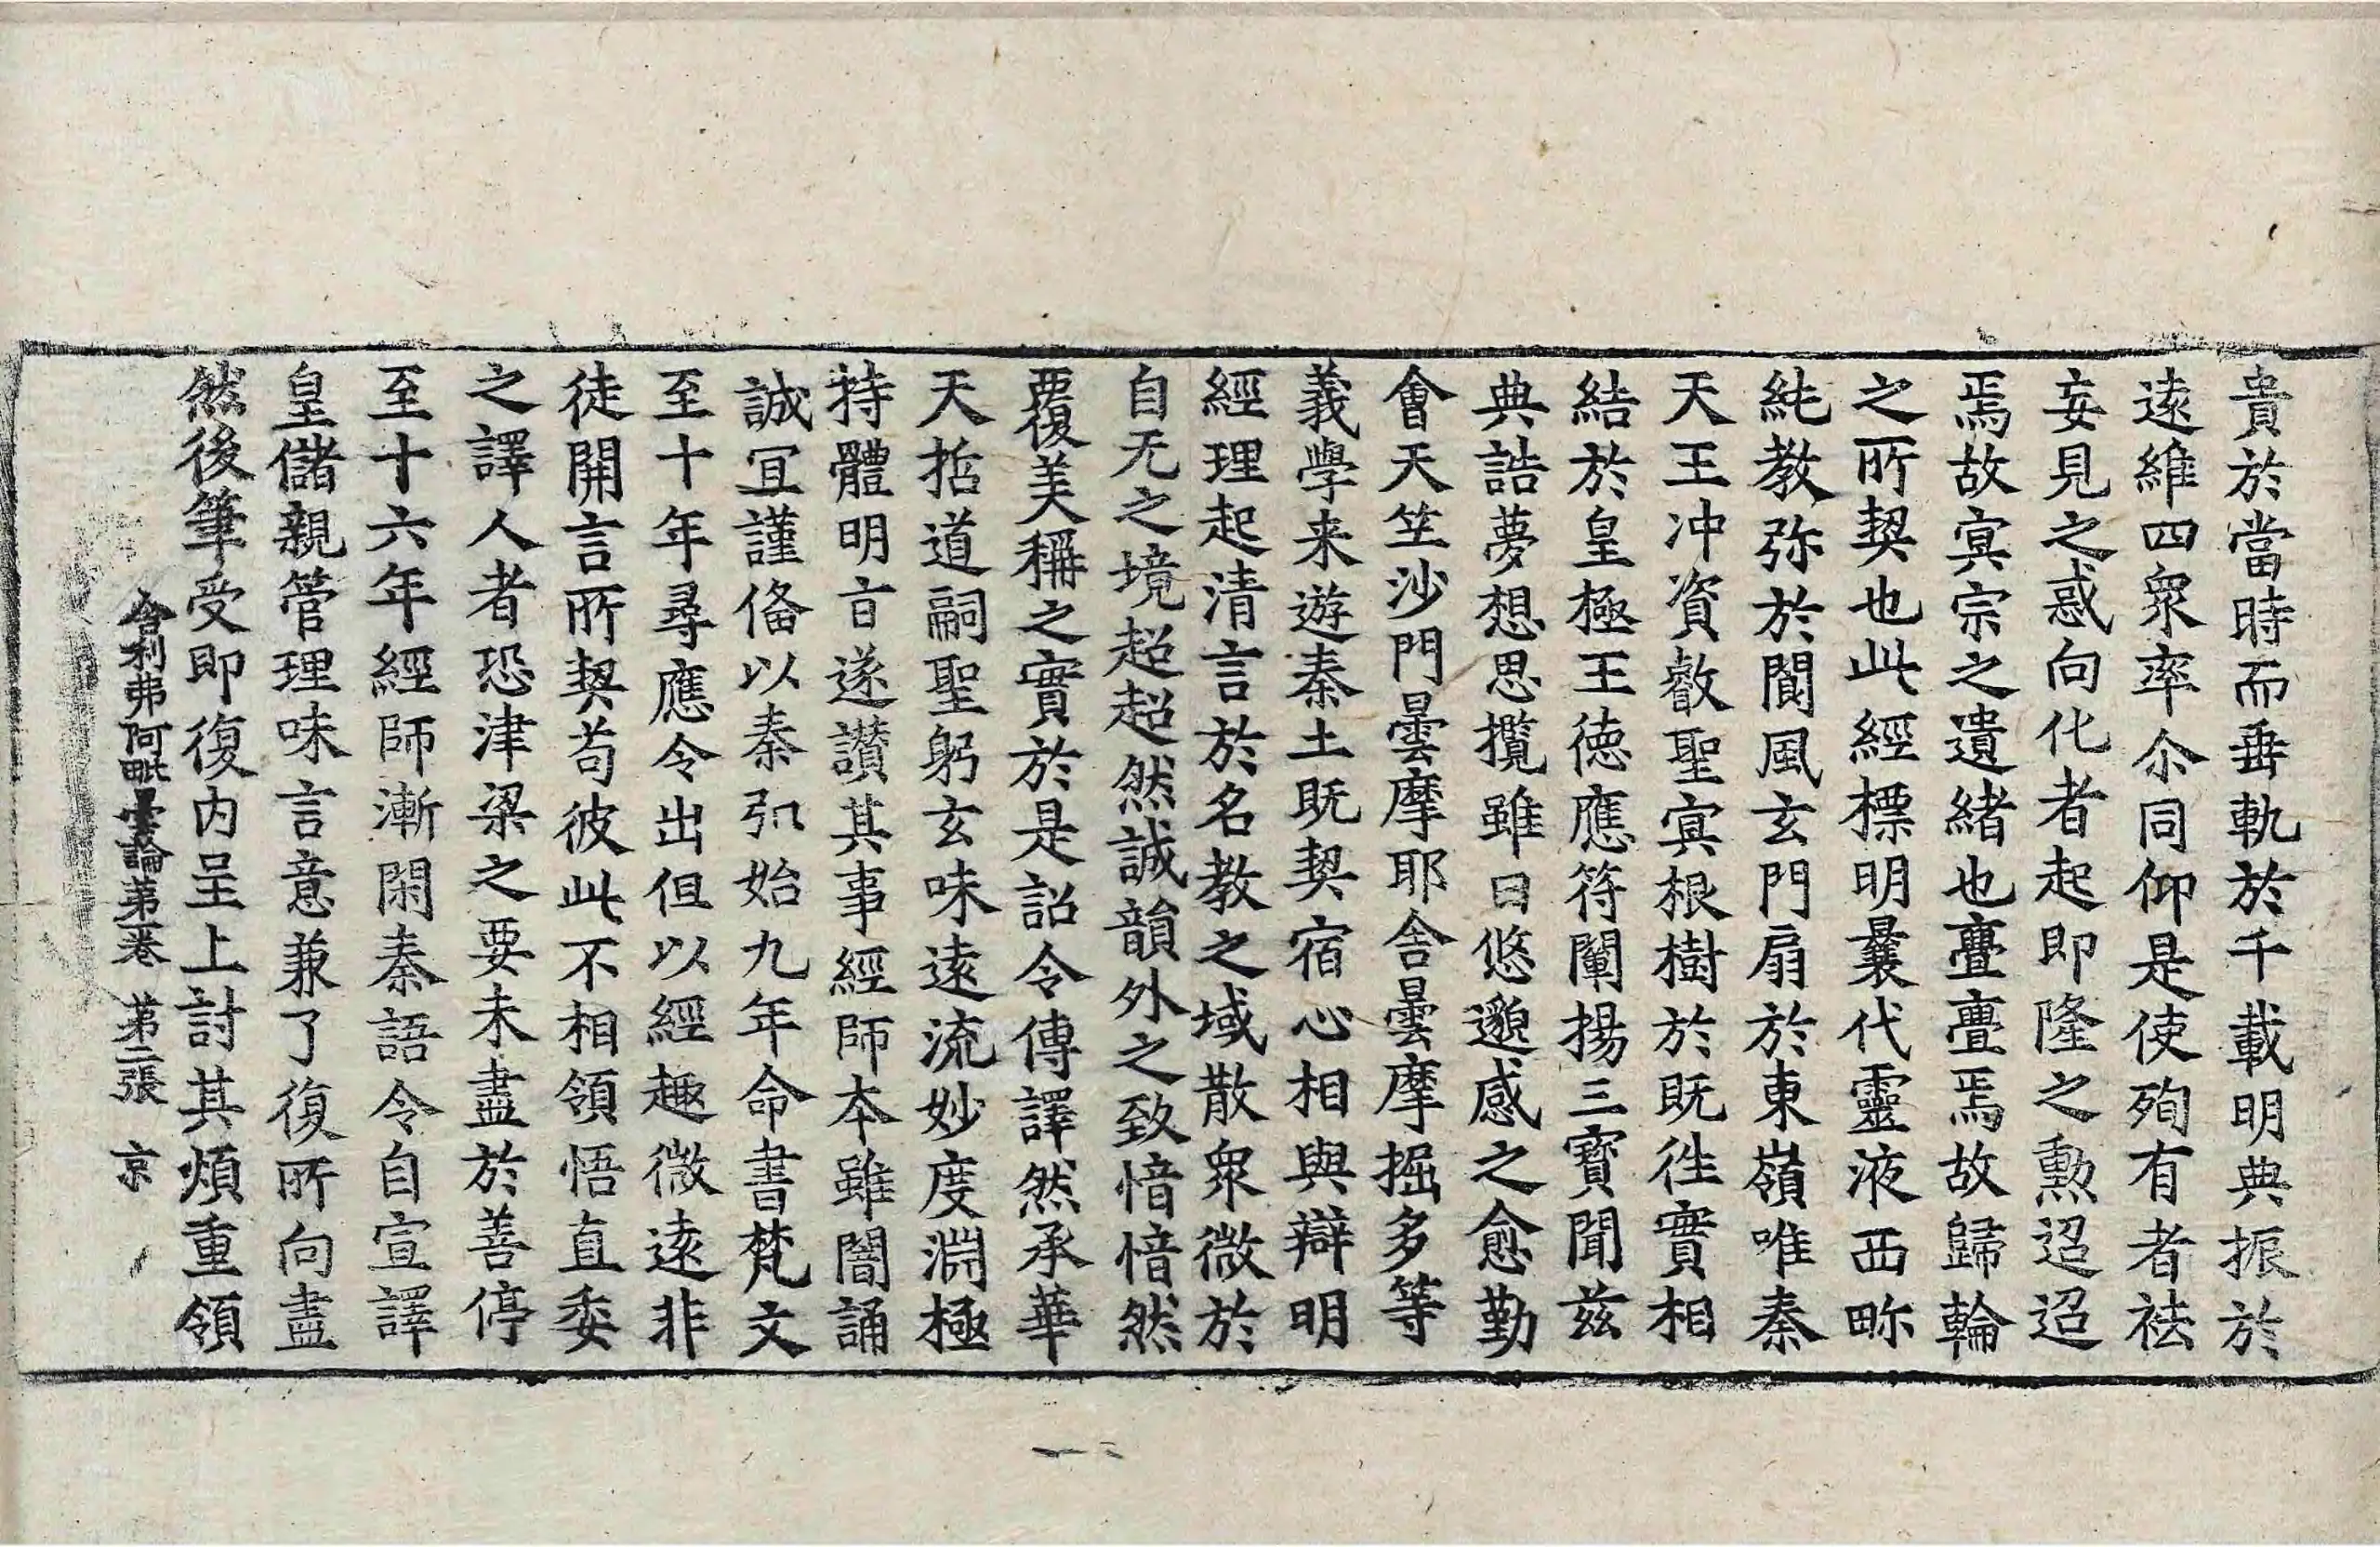 貴於當時而垂軌於千載明典振於
遠維四衆率尒同仰是使殉有者祛
妄見之惑向化者起即隆之勲迢迢
焉故㝠宗之遺緒也亹亹焉故歸輪
之所契也此經標明曩代靈液西畛
純教弥於閬風玄門扃於東嶺唯秦
天王冲資叡聖㝠根樹於既徃實相
結於皇極王德應符闡揚三寳聞兹
典誥夢想思攬雖曰悠邈感之愈勤
會天竺沙門曇摩耶舍曇摩掘多等
義學来遊秦土既契宿心相與辯明
經理起清言於名教之域散衆微於
自无之境超超然誠韻外之致愔愔然
覆美稱之實於是詔令傳譯然承華
天哲道嗣聖躬玄味遠流妙度淵極
特體明旨遂讃其事經師本雖闇誦
誠冝謹俻以秦弘始九年命書梵文
至十年尋應令出但以經趣微遠非
徒開言所契苟彼此不相領悟直委
之譯人者恐津梁之要未盡於善停
至十六年經師漸閑秦語令自宣譯
皇儲親管理味言意兼了復所向盡
然後筆受即復内呈上討其煩重領
舍利弗阿毗曇論第一卷　第二張　京